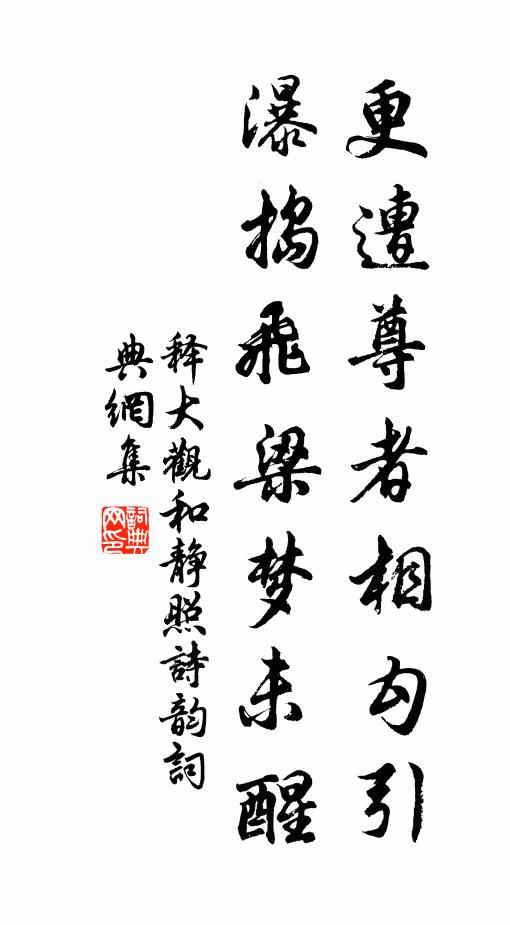 更遭尊者相勾引
瀑捣飛梁梦未醒
释大觀和静照詩韵詞
典網集
詞典
网印